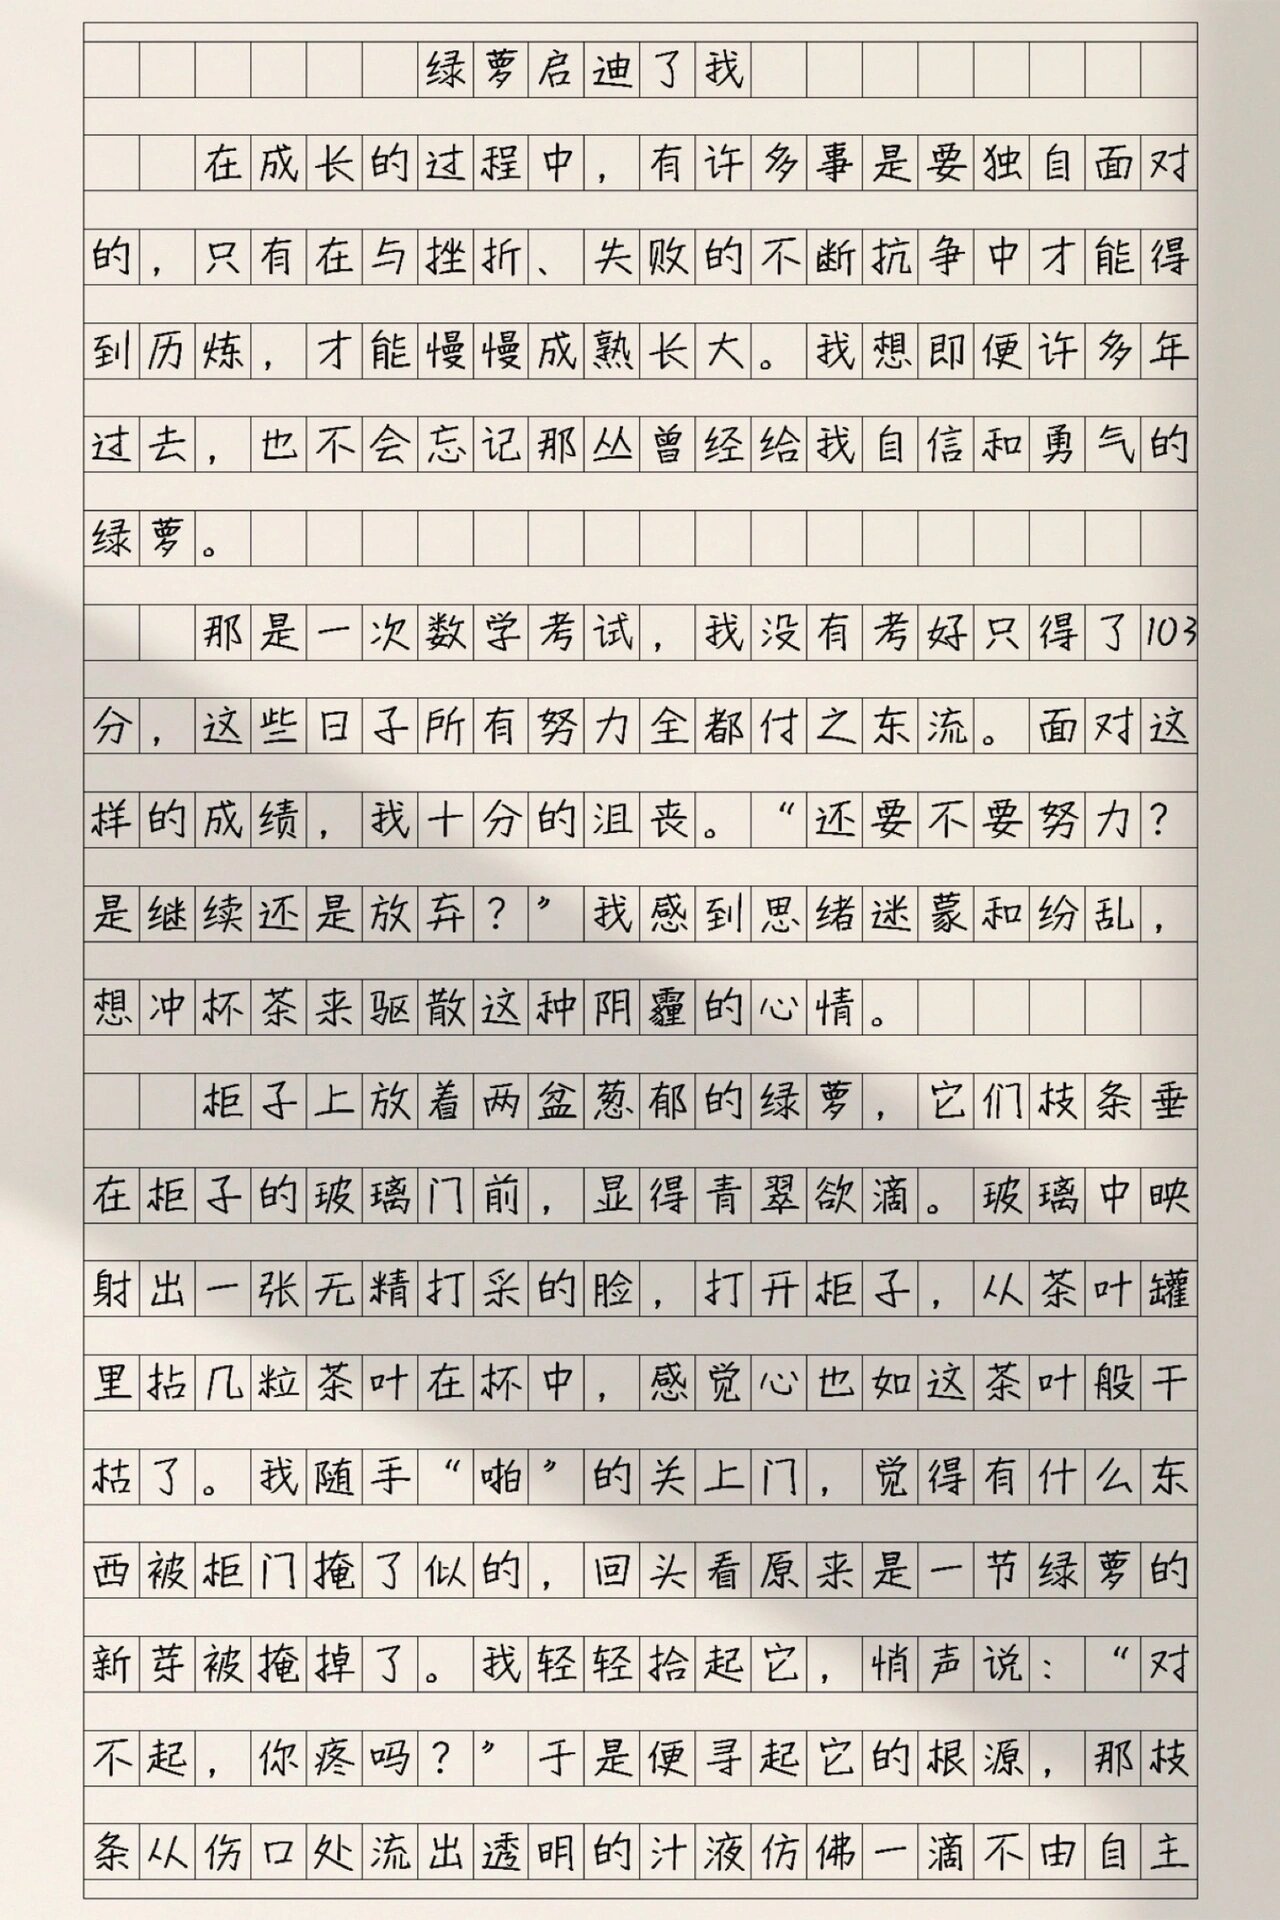 绿萝启迪了我
在成长的过程中，有许多事是要独自面对
的，只有在与挫折、失败的不断抗争中才能得
到历炼，才能慢慢成熟长大。我想即便许多年
过去，也不会忘记那丛曾经给我自信和勇气的
绿萝。
那是一次数学考试，我没有考好只得了103
分，这些日子所有努力全都付之东流。面对这
样的成绩，我十分的沮丧。“还要不要努力？
是继续还是放弃？”我感到思绪迷蒙和纷乱，
想冲杯茶来驱散这种阴霾的心情。
柜子上放着两盆葱郁的绿萝，它们枝条垂
在柜子的玻璃门前，显得青翠欲滴。玻璃中映
射出一张无精打采的脸，打开柜子，从茶叶罐
里拈几粒茶叶在杯中，感觉心也如这茶叶般干
枯了。我随手“啪”的关上门，觉得有什么东
西被柜门掩了似的，回头看原来是一节绿萝的
新芽被掩掉了。我轻轻拾起它，悄声说：“对
不起，你疼吗？”于是便寻起它的根源，那枝
条从伤口处流出透明的汁液仿佛一滴不由自主